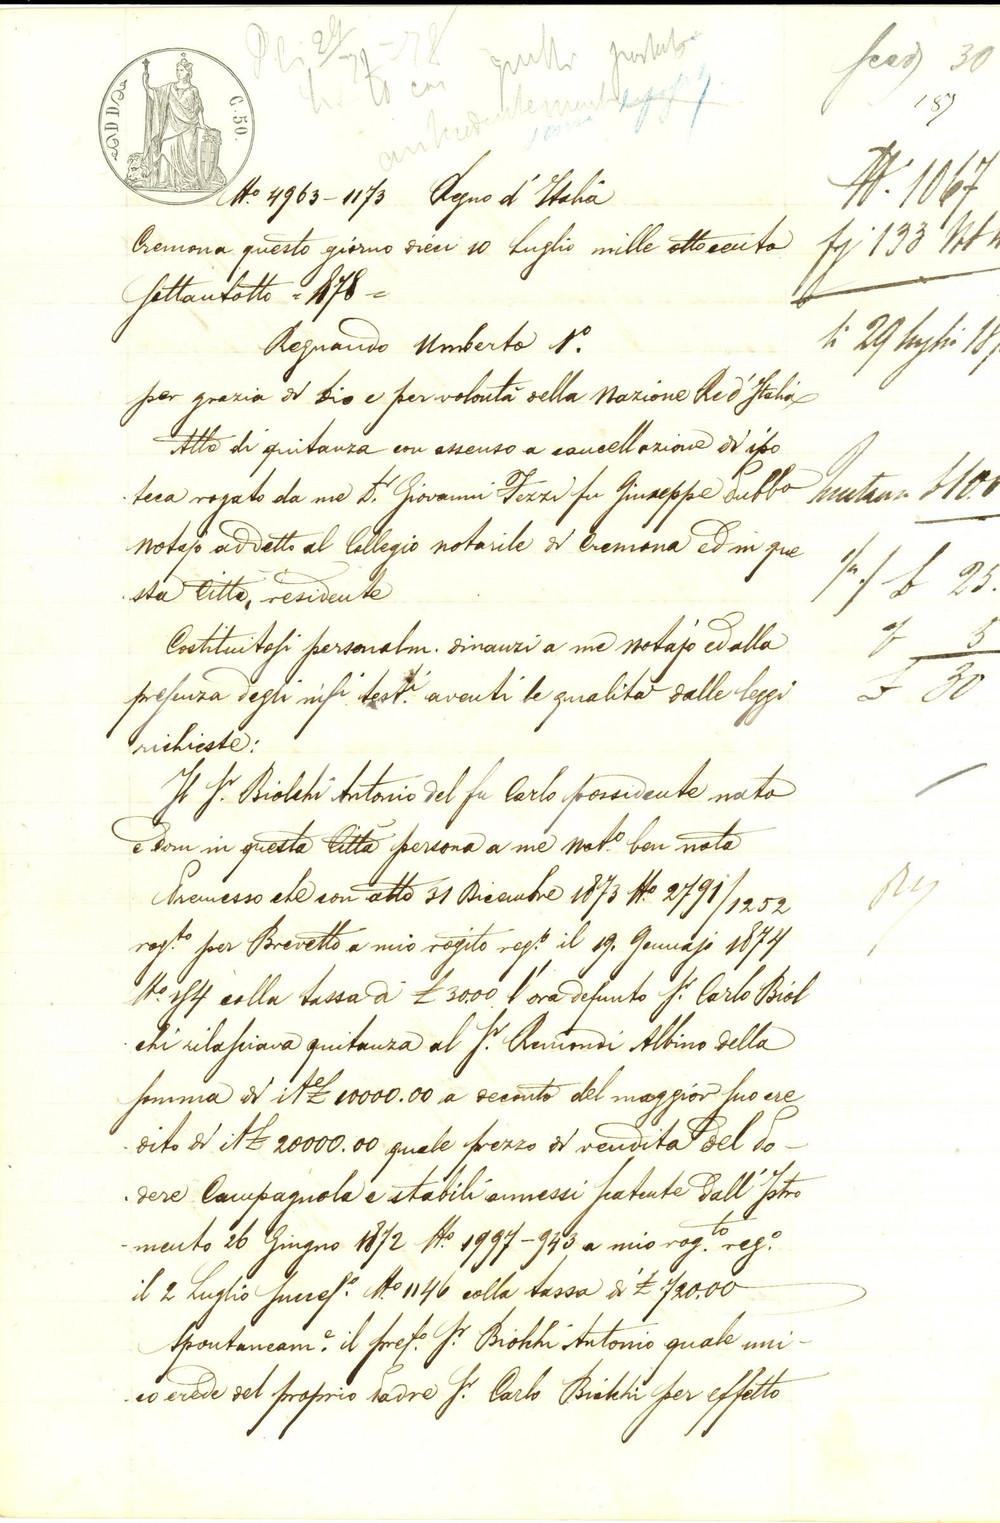 C. 50.
N.° 4963-1173 Regno d'Italia
Cremona questo giorno dieci 10 Luglio mille ottocento
settantotto = 1878 =
Regnando Umberto 1°.
per grazia di Dio e per volontà della Nazione Re d'Italia
Atto di quitanza con assenso a cancellazione di ipo
teca rogato da me D.r Giovanni Fezzi fu Giuseppe Pubb.o
Notajo addetto al Collegio notarile di Cremona ed in que
sta Città, residente
Costituitosi personalm. dinanzi a me Notajo ed alla
presenza degli infi test.i aventi le qualità dalle leggi
richieste:
Il S.r Biolchi Antonio del fu Carlo possidente nato
e dom in questa Città persona a me Not.o ben nota
Premesso che con atto 31 Dicembre 1873 N.° 2791/1252
rog.to per Brevetto a mio rogito reg.o il 19. Gennajo 1874
N.° 154 colla tassa di £ 30.00 l'ora defunto S.r Carlo Biol
chi rilasciava quitanza al S.r Remondi Albino della
somma di it£ 10000.00 a sconto del maggior suo cre
dito di it£ 20000.00 quale prezzo di vendita del Po-
dere Campagnola e stabili annessi portante dall'Istro
mento 26 Giugno 1872 N.° 1997-943 a mio rog.to reg.o
il 2 Luglio succes.o N.° 1146 colla tassa di £ 720.00
Spontaneam.e il pref.o S.r Biolchi Antonio quale uni-
co erede del proprio Padre S.r Carlo Biolchi per effetto
30
187
N. 1067
133
li 29 luglio 187
25.
5
30